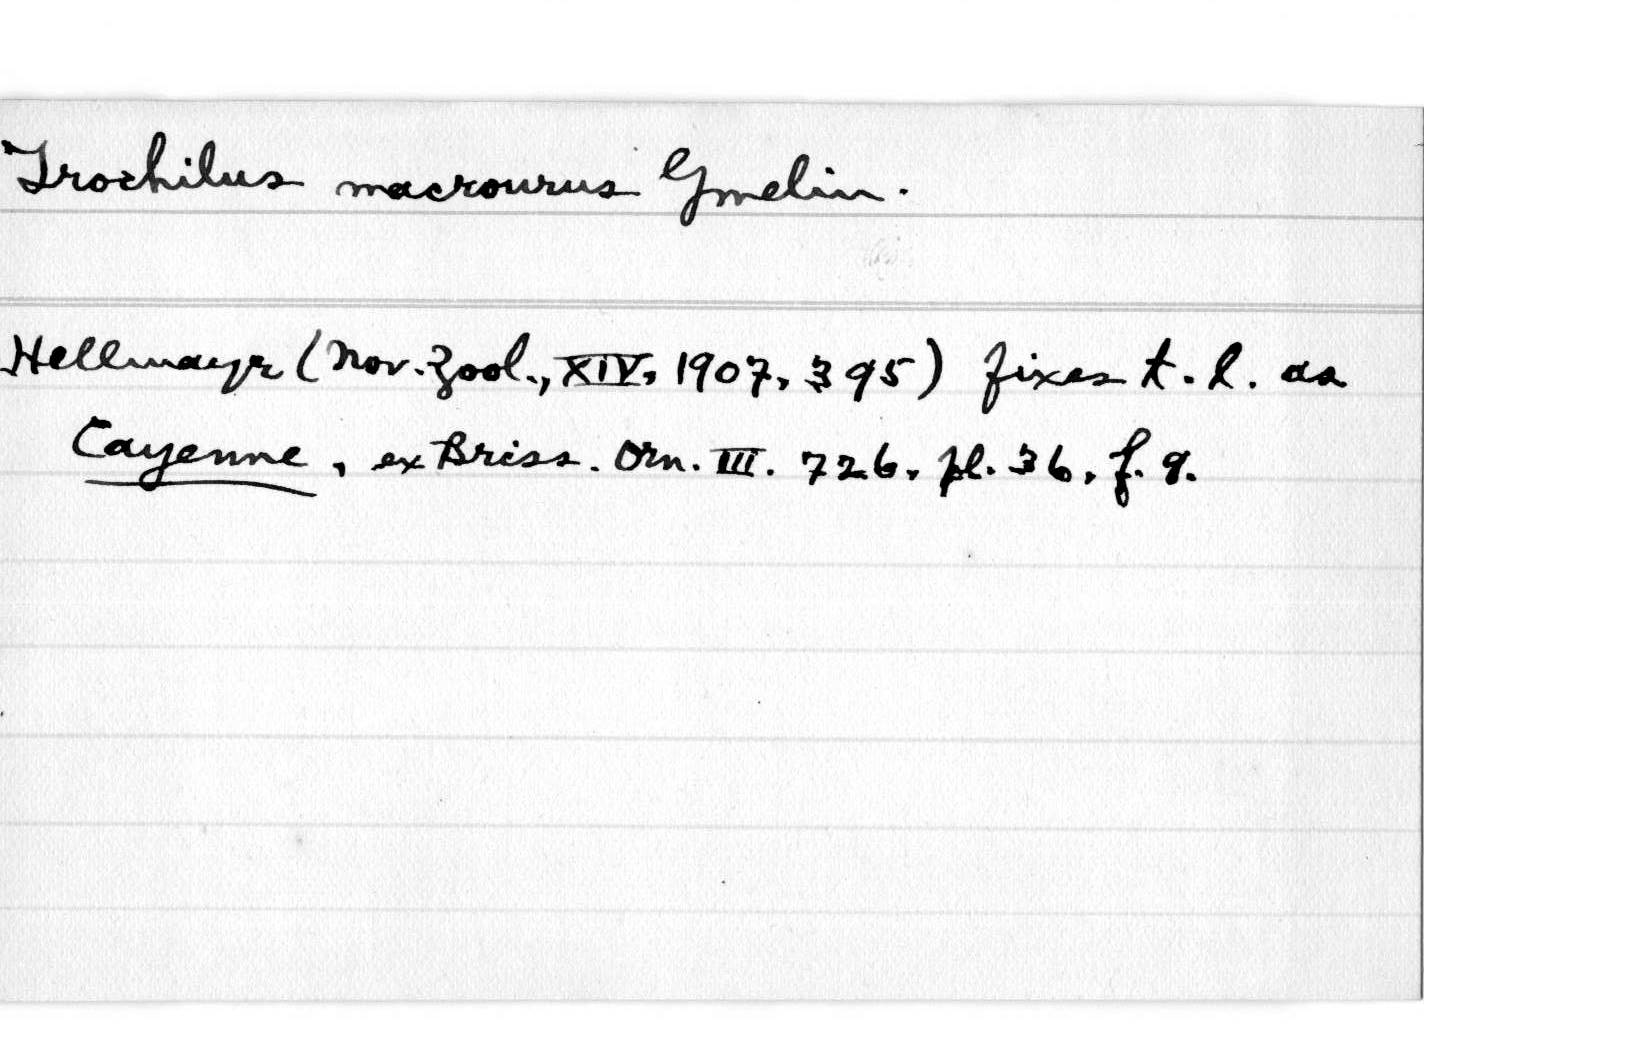 Trochilus macrourus Gmelin.
Hellmayr (Nov. Zool., XIV, 1907, 395) fixes t. l. as
Cayenne, ex Briss. Orn. III. 726, pl. 36, f. 9.